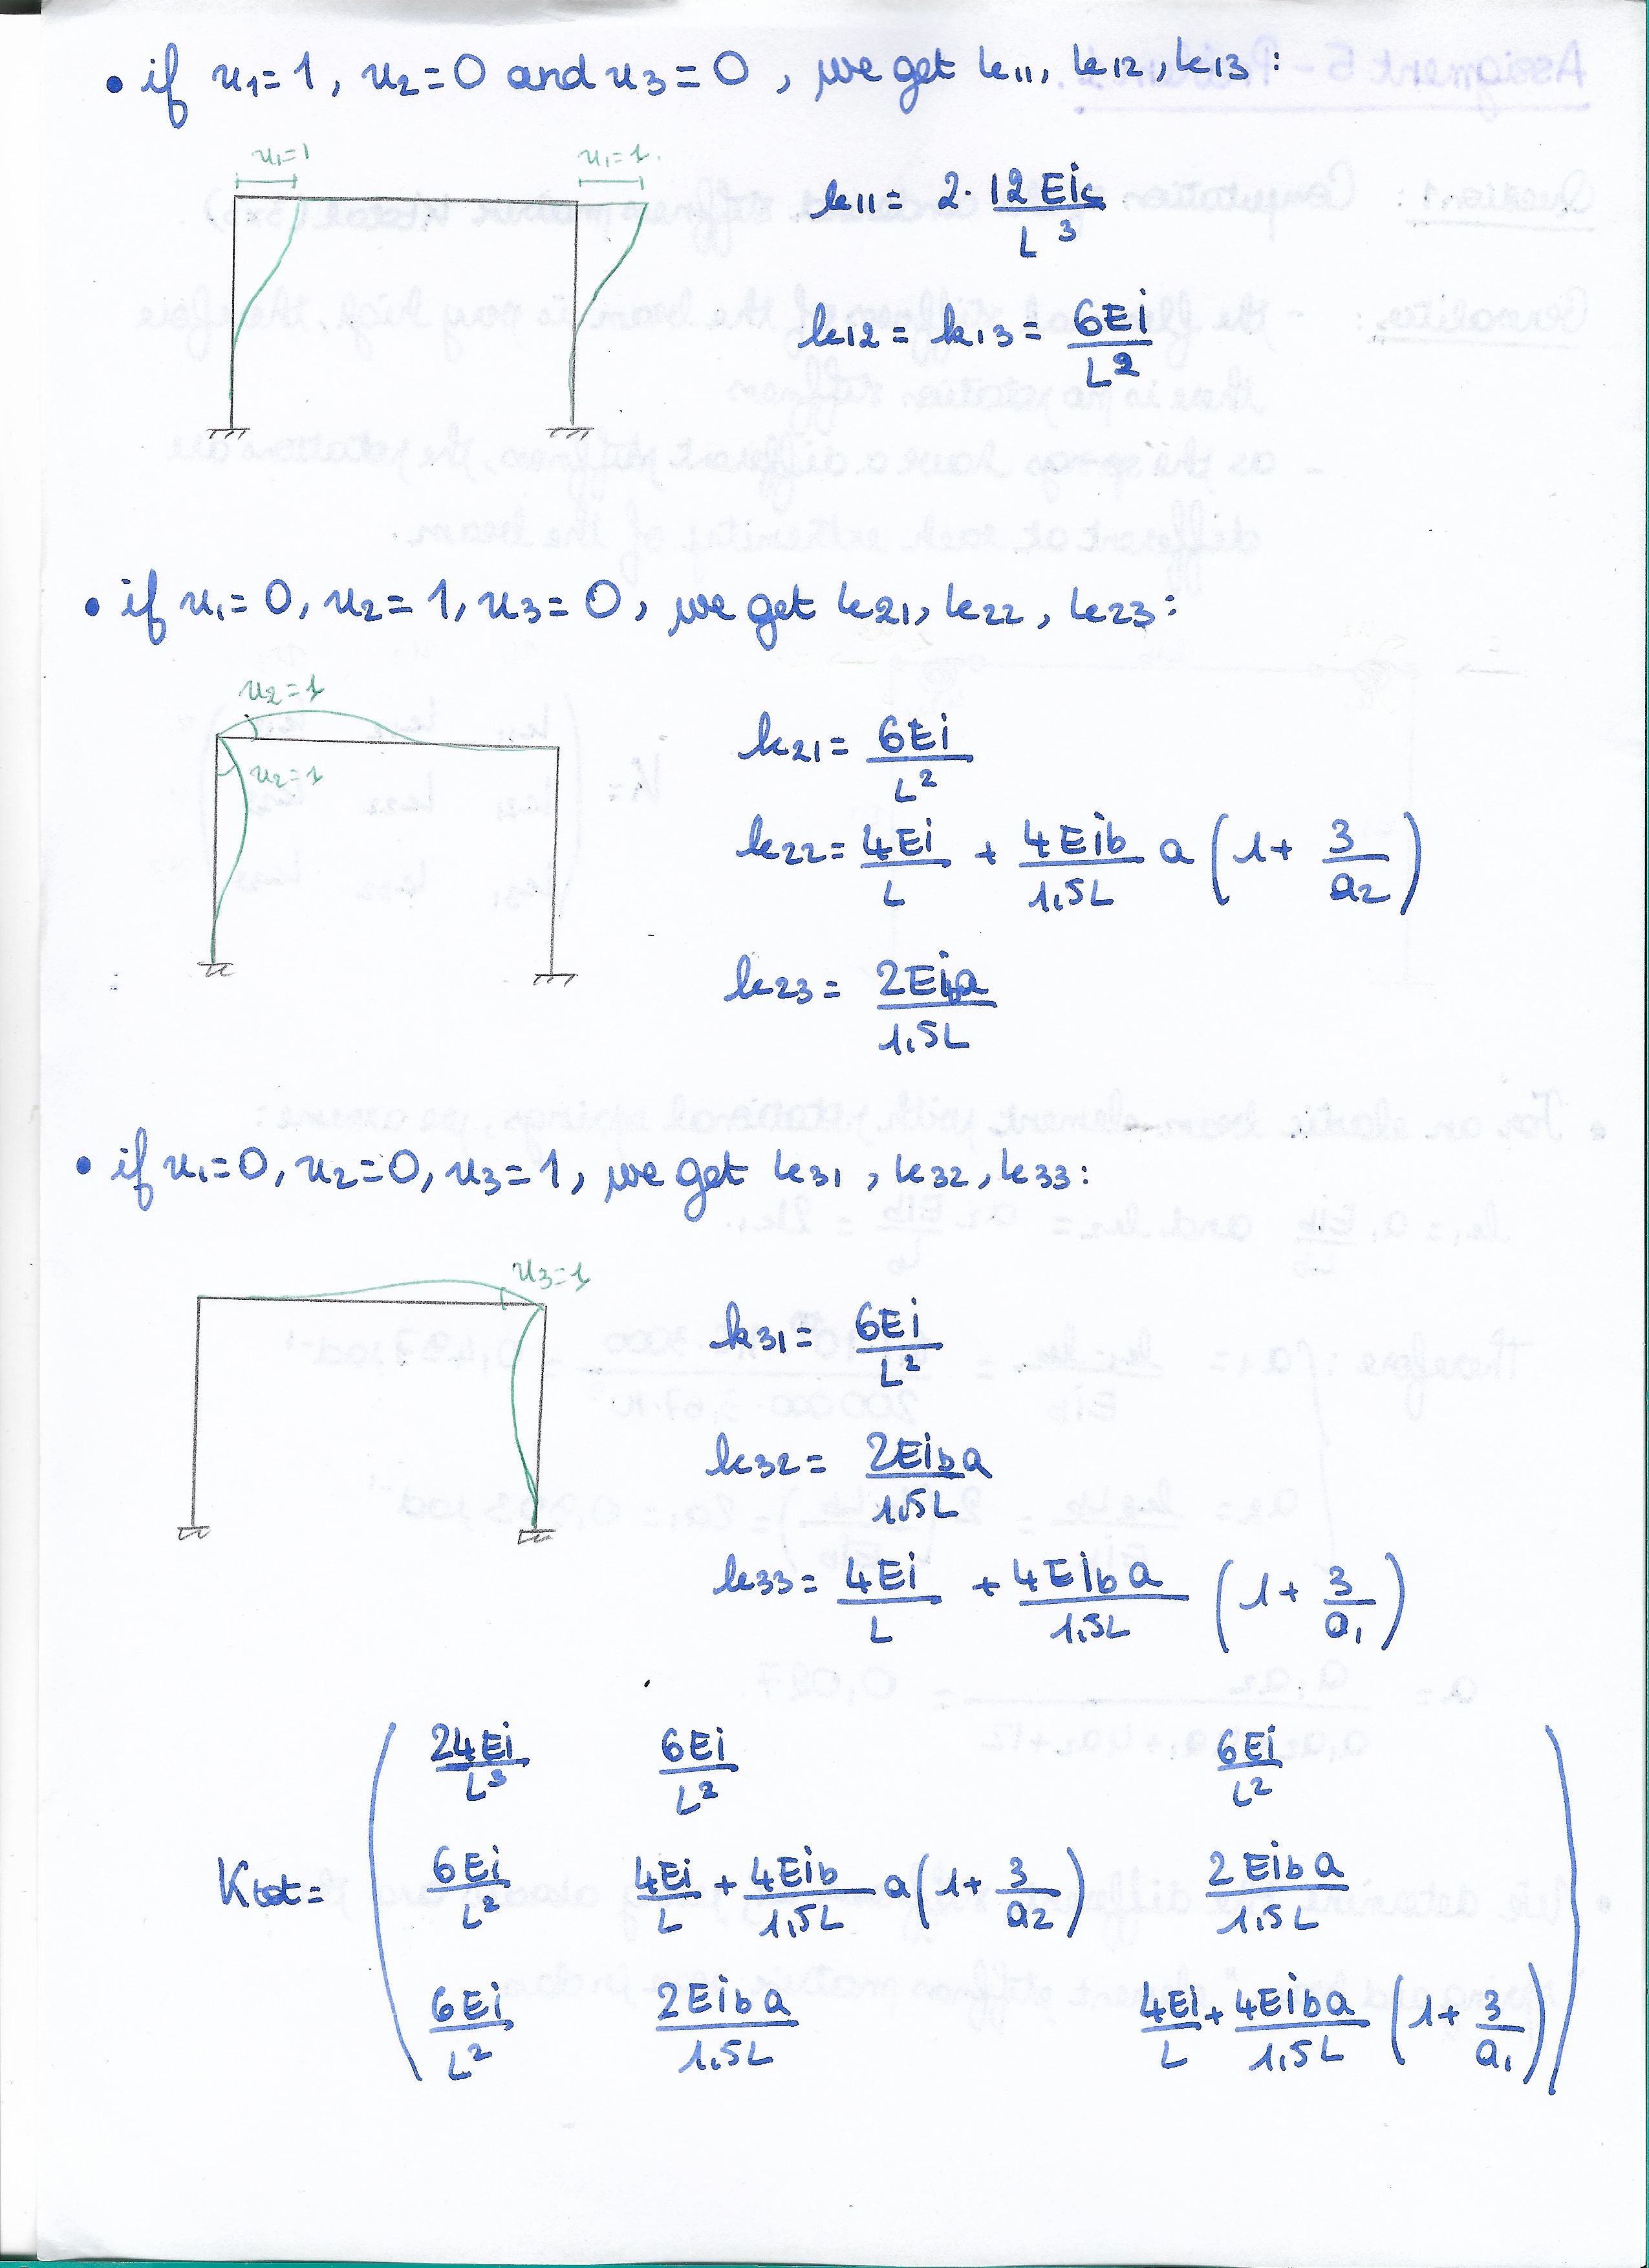 • if u1=1, u2=0 and u3=0, we get k11, k12, k13:
u1=1 u1=1.
k11= 2. 12Eic/L^3
k12= k13= 6Ei/L^2
• if u1=0, u2=1, u3=0, we get k21, k22, k23:
u2=1
u2=1
k21= 6Ei/L^2
k22= 4Ei/L + 4Eib/1,5L a (1+ 3/a2)
k23= 2Eiba/1,5L
• if u1=0, u2=0, u3=1, we get k31, k32, k33:
u3=1
k31= 6Ei/L^2
k32= 2Eiba/1,5L
k33= 4Ei/L + 4Eiba/1,5L (1+ 3/a1)
24Ei/L^3 6Ei/L^2 6Ei/L^2
Ktot= 6Ei/L^2 4Ei/L + 4Eib/1,5L a(1+ 3/a2) 2Eiba/1,5L
6Ei/L^2 2Eiba/1,5L 4Ei/L + 4Eiba/1,5L (1+ 3/a1)